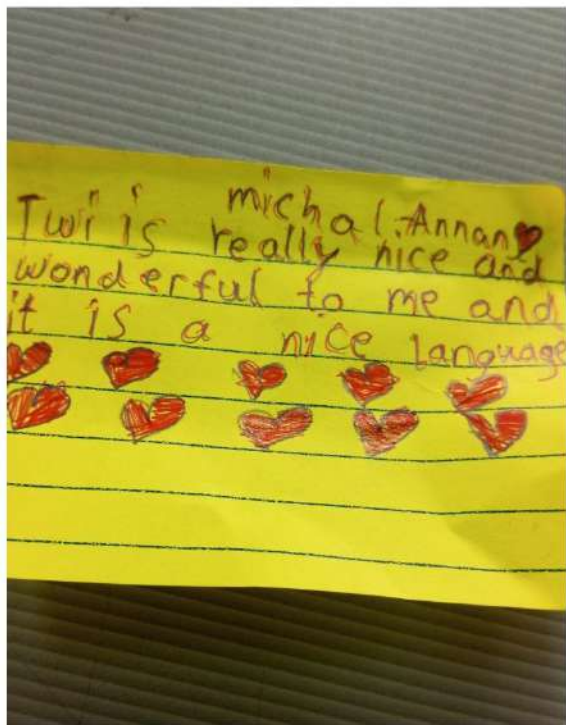 michal.Annan
Twi is really nice and
wonderful to me and
it is a nice language